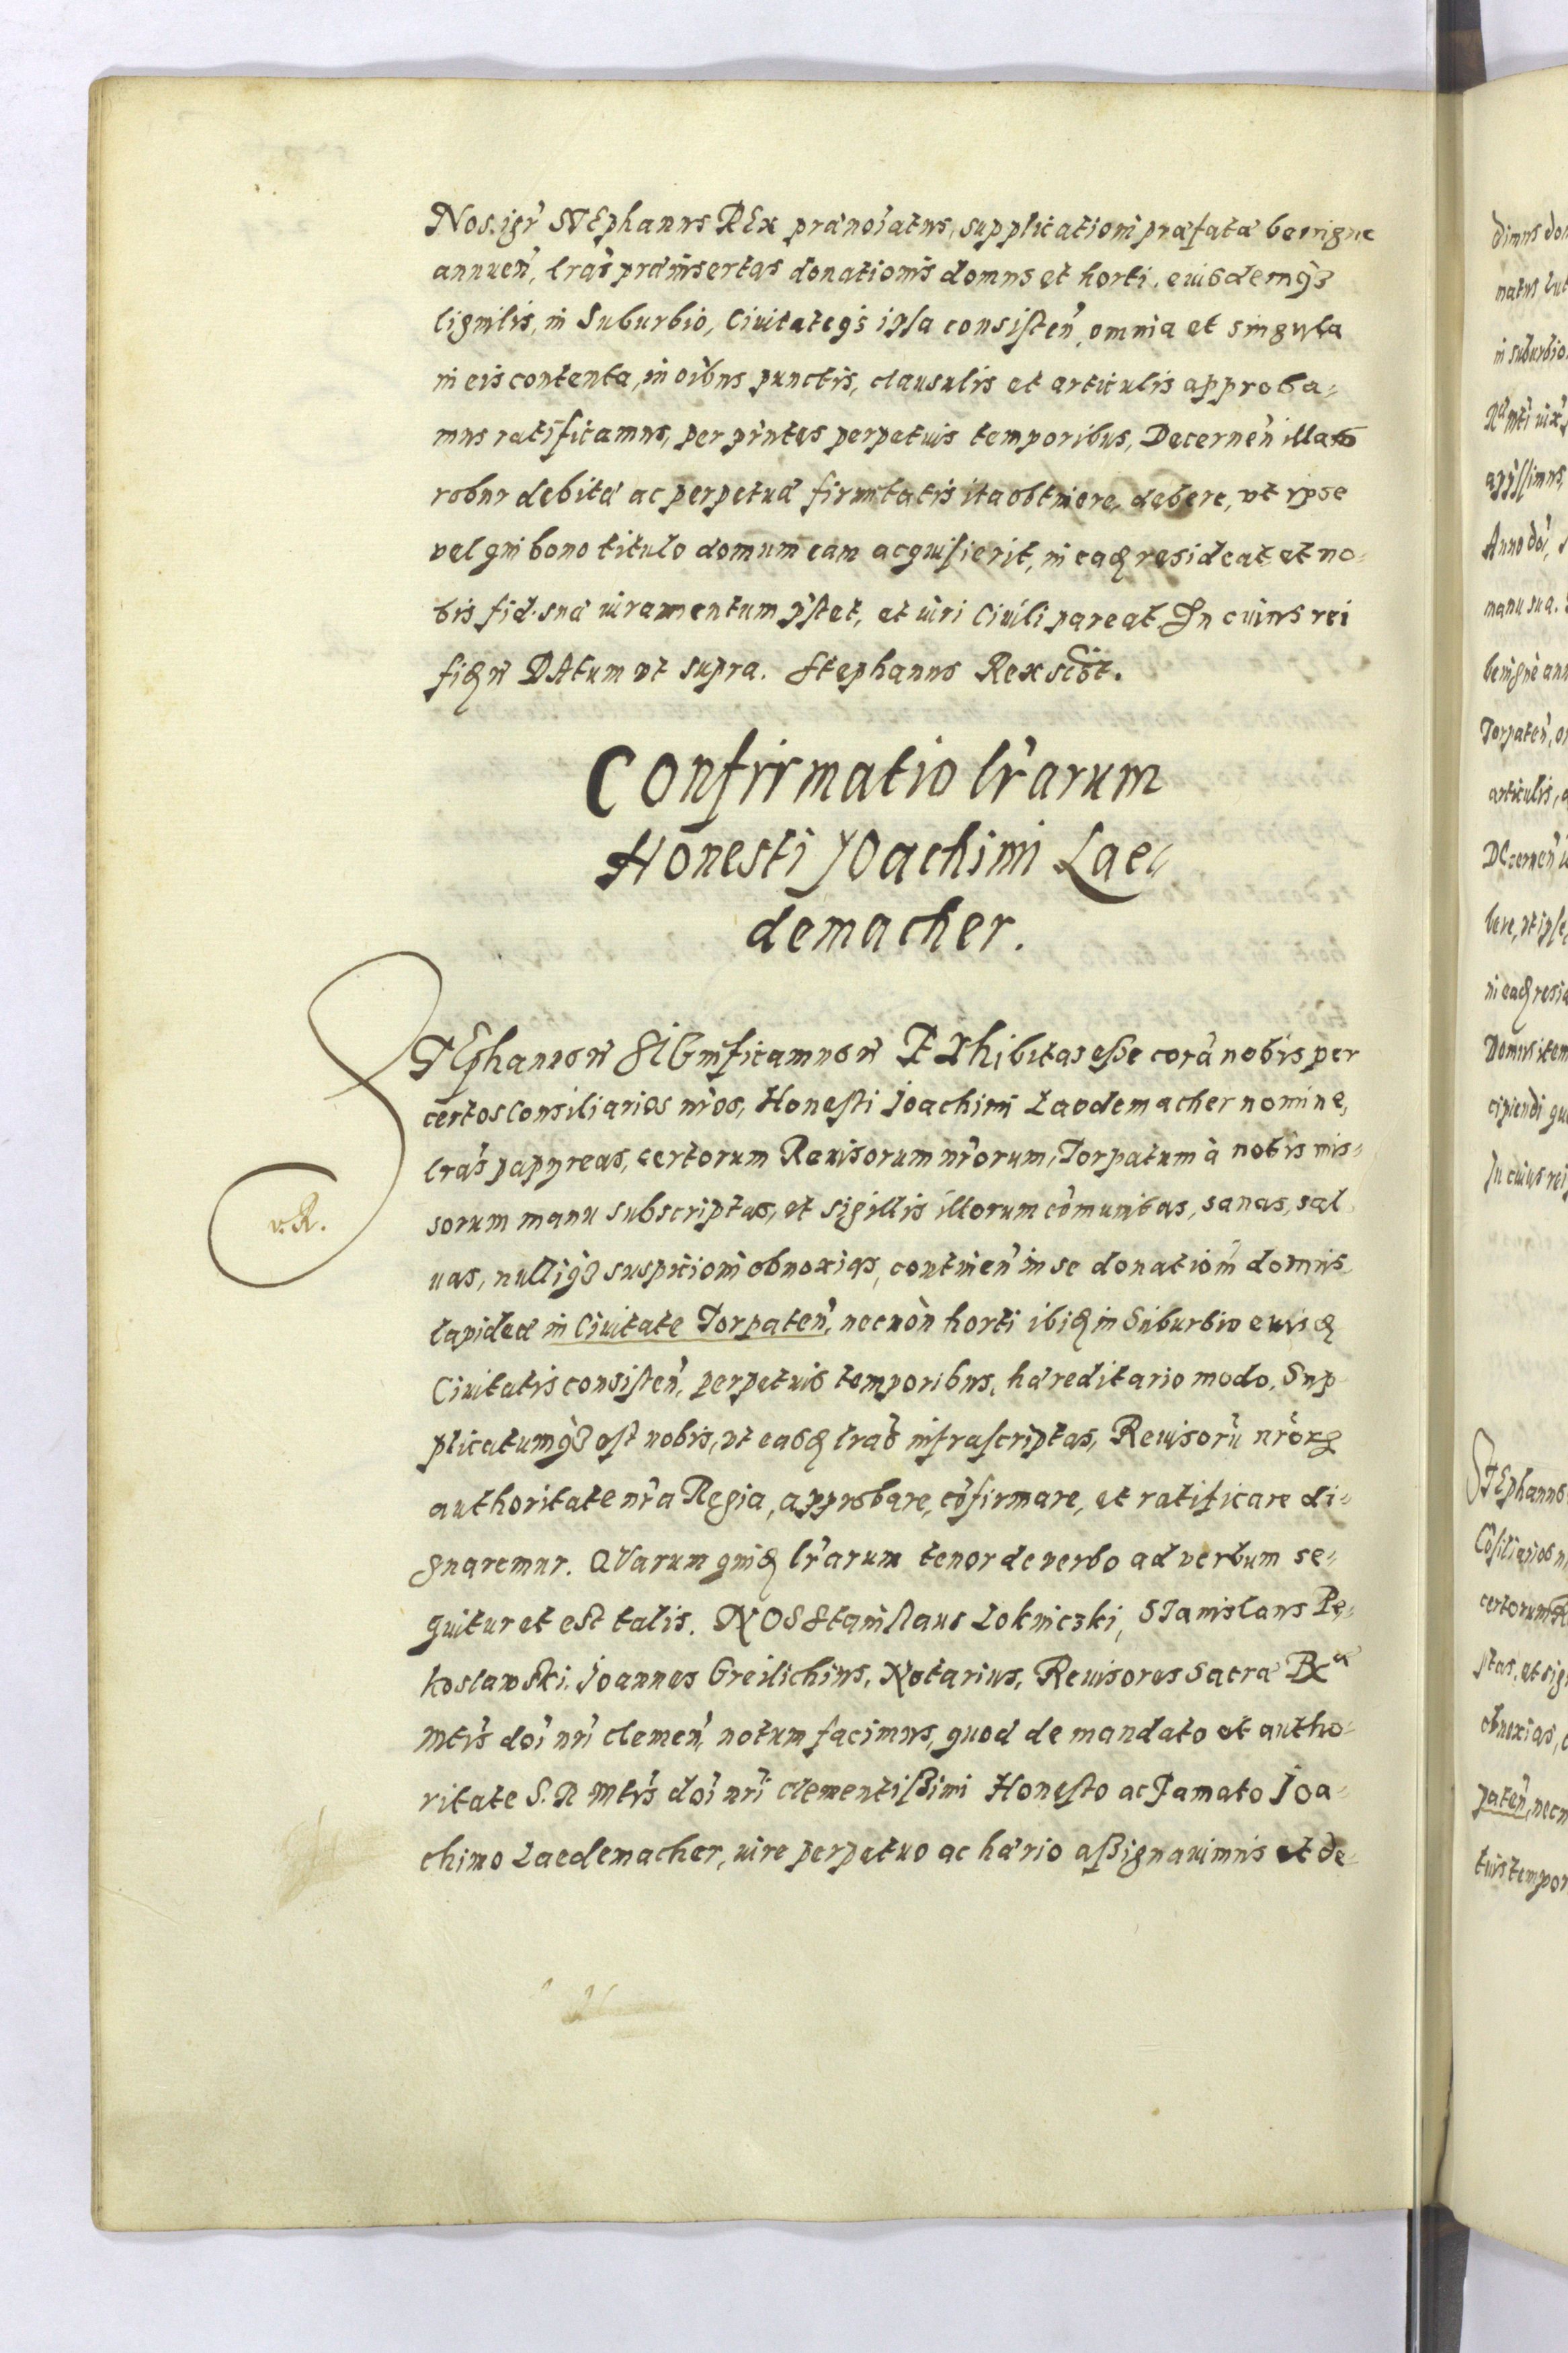 Nos igr̃ STEphanus REx prænoĩatus, supplicationi præfatæ benigne
annueñ, lras̃ præinsertas donationis domus et horti, eiusdemqꝫ
lignilis, in Suburbio, Ciuitateqꝫ ipsa consisteñ, omnia et singula
in eis contenta, in oĩbus punctis, clausulis et articulis approba⸗
mus ratificamus, per pñtes perpetuis temporibus, Decerneñ illas
robur debitæ ac perpetuæ firmitatis ita obtinere debere, vt ipse
vel qui bono titulo domum eam acquisierit, in eaꝗ resideat et no⸗
bis fid. suæ iuramentum pr̃stet, et iuri Ciuili pareat. In cuius rei
fiꝗ ñ DAtum vt supra. Stephanus Rex scĩt.
COnfirmatio lr̃arum
Honesti JOachimi Lae⸗
demacher.
STEphanus ñ SIGnificamus ñ EXhibitas esse corã nobis per
certos Consiliarios nr̃os, Honesti Joachimi Laedemacher nomine,
lras̃ papyreas, certorum Reuisorum nr̃orum, Torpatum à nobis mis⸗
sorum manu subscriptas, et sigillis illorum cõmunitas, sanas, sal
uas, nulliqꝫ suspicioni obnoxias, contineñ in se donatioñ domus
lapideæ in Ciuitate Torpateñ, necnòn horti ibiꝗ in Suburbio eiusꝗ
Ciuitatis consisteñ, perpetuis temporibus, hæreditario modo. Sup
plicatumqꝫ est nobis, vt easꝗ lras̃ infrascriptas, Reuisorũ nr̃orꝝ
authoritate nr̃a Regia, approbare, cõfirmare, et ratificare di⸗
gnaremur. QVarum quiꝗ lr̃arum tenor de verbo ad verbum se⸗
quitur et est talis. NOS Stanislaus Lokniczki, STanislaus Pę⸗
koslawski, Joannes Greilichius, Notarius, Reuisores Sacræ Rᵃ
Mtis̃ doĩ nr̃i clemeñ, notum facimus, quod de mandato et autho⸗
ritate S. R Mtis̃ doĩ nr̃i clementißimi Honesto ac Famato Joa⸗
chimo Laedemacher, iure perpetuo ac hær̃io aßignauimus et de⸗
v.R.